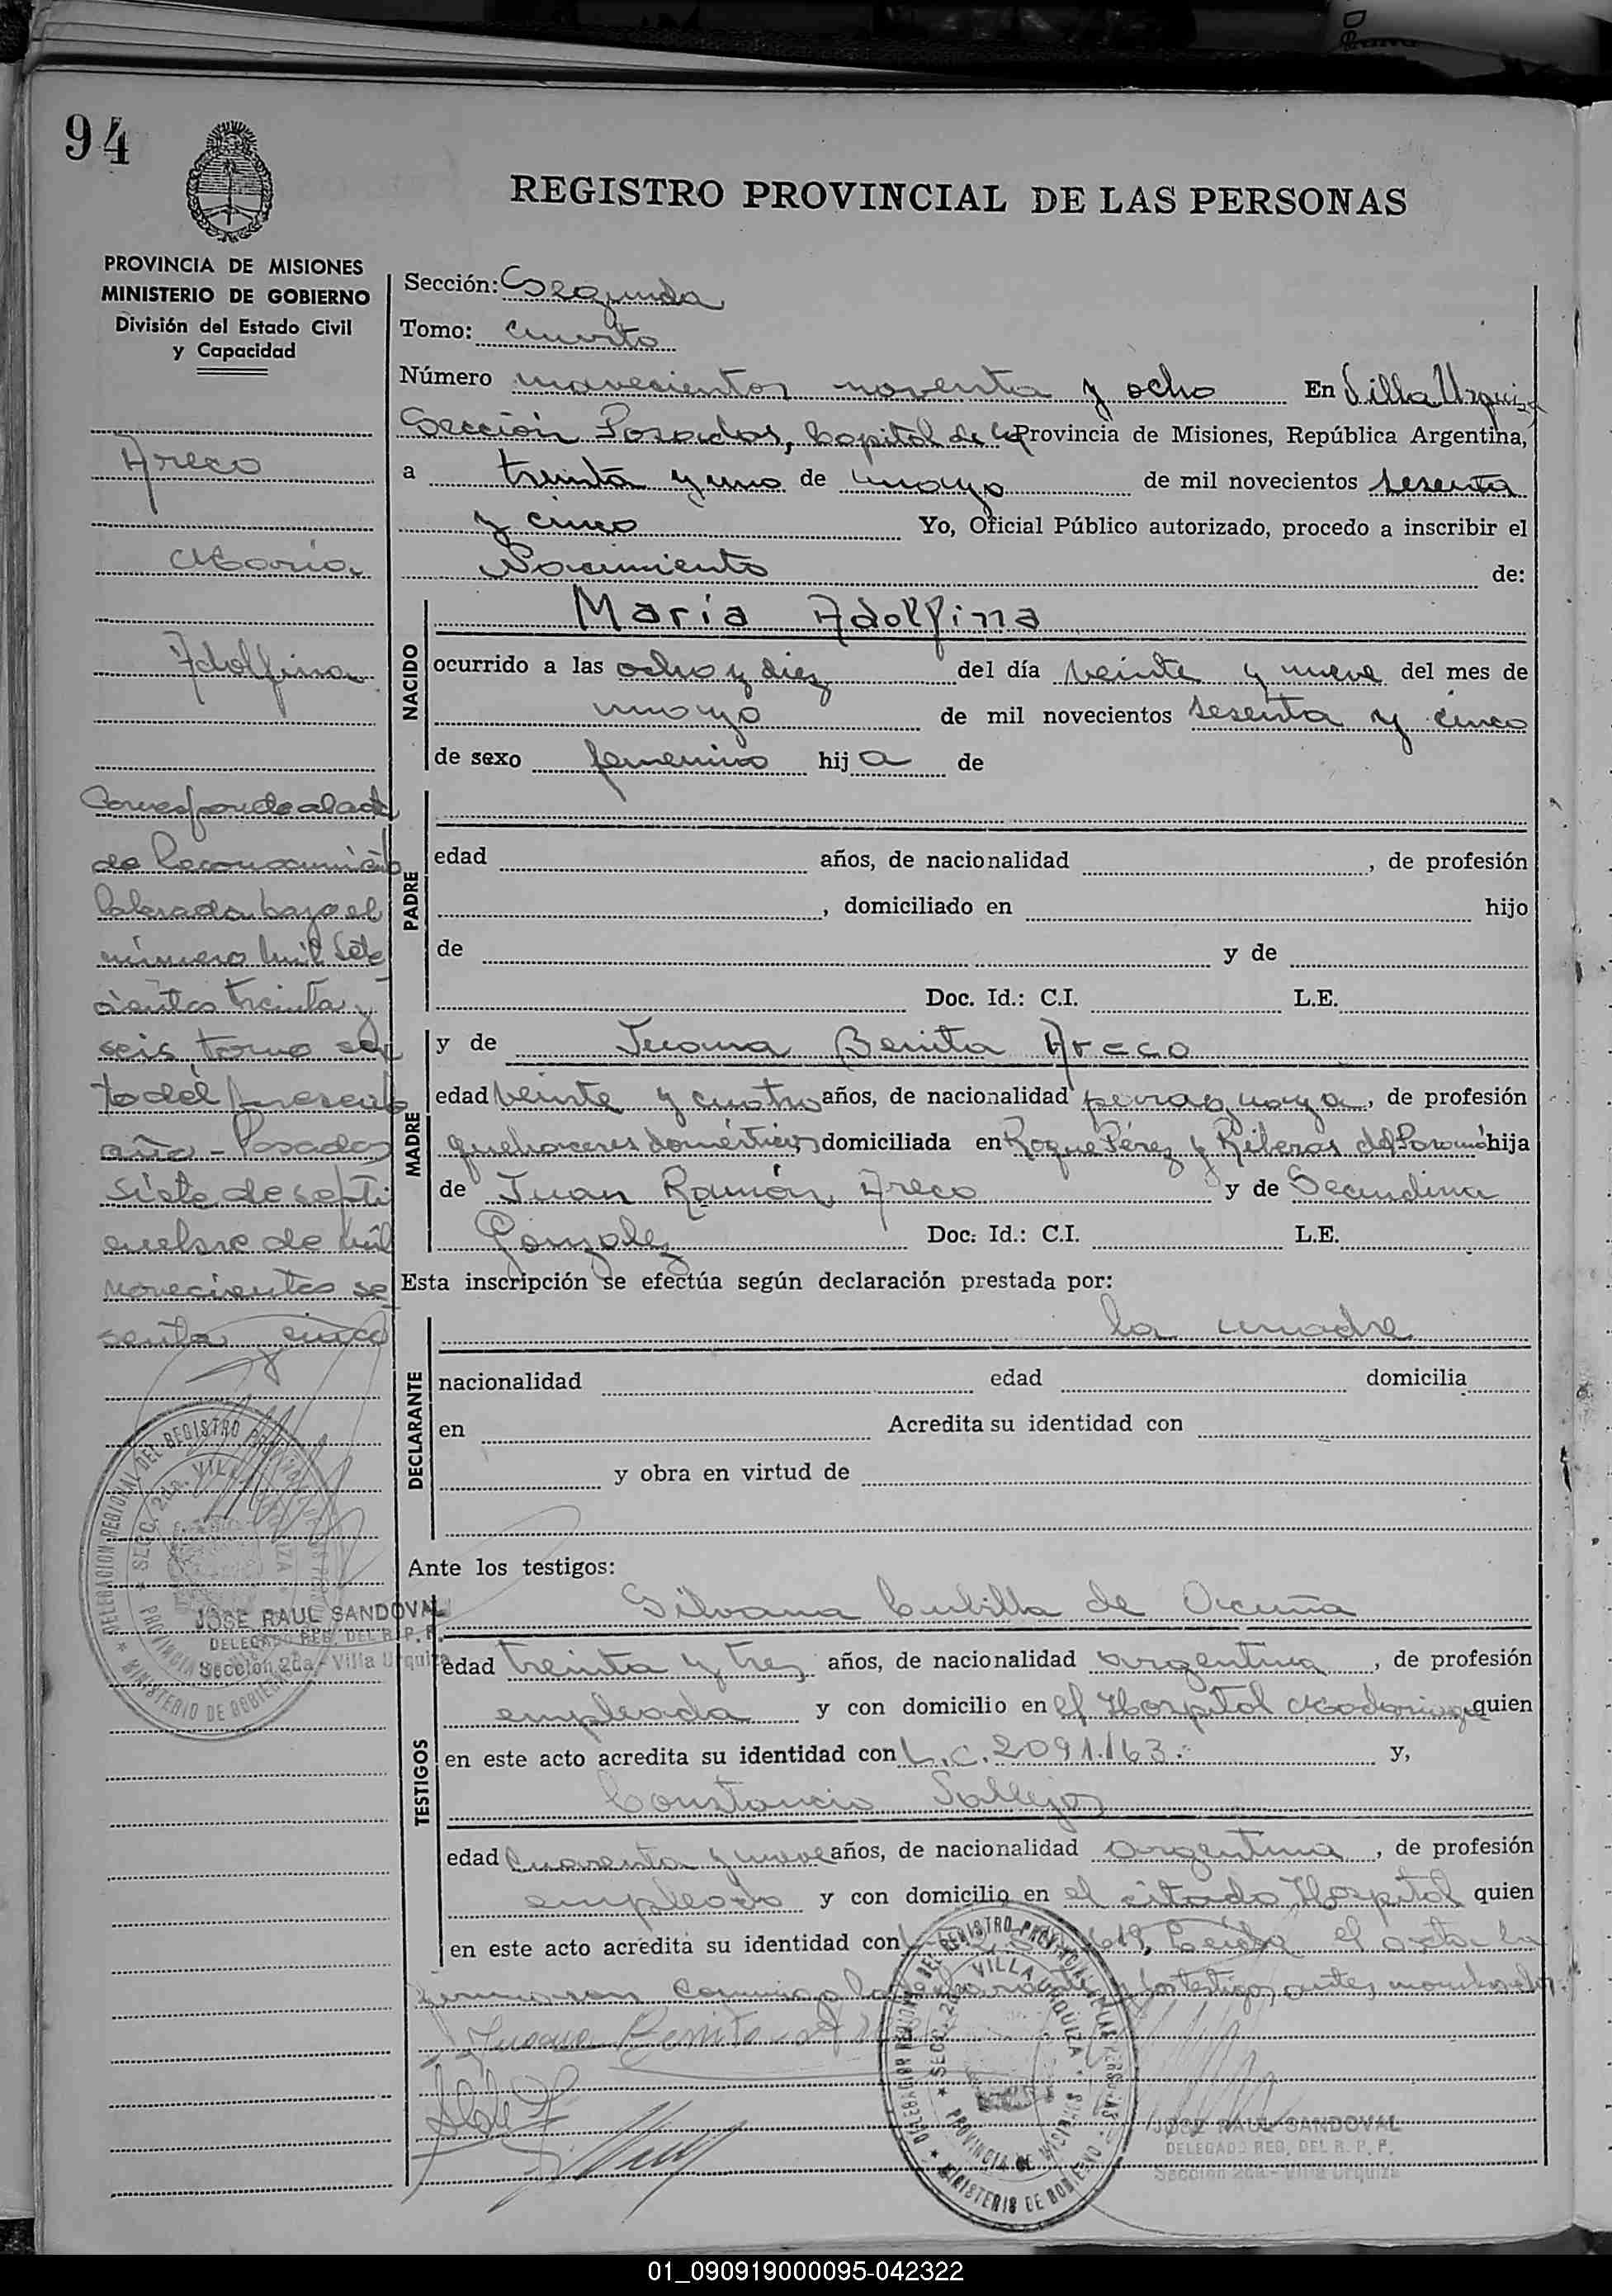 94
REGISTRO PROVINCIAL DE LAS PERSONAS
PROVINCIA DE MISIONES
MINISTERIO DE GOBIERNO
División del Estado Civil
y Capacidad
Areco
María
Adolfina
Corresponde al acta
de Reconocimiento
labrada bajo el
número mil sete
cientos treinta y
seis tomo sex
to del presente
año - Posadas
siete de septi
embre de mil
novecientos se
senta cinco
Sección: Segunda
Tomo: cuarto
Número novecientos noventa y ocho En Villa Urquiza
Sección Posadas, Capital de la Provincia de Misiones, República Argentina,
a treinta y uno de mayo de mil novecientos sesenta
y cinco Yo, Oficial Público autorizado, procedo a inscribir el
Nacimiento de:
NACIDO
María Adolfina
ocurrido a las ocho y diez del día veinte y nueve del mes de
mayo de mil novecientos sesenta y cinco
de sexo femenino hija de
PADRE
edad años, de nacionalidad , de profesión
, domiciliado en hijo
de y de
Doc. Id.: C.I. L.E.
MADRE
y de Juana Benita Areco
edad veinte y cuatro años, de nacionalidad paraguaya, de profesión
quehaceres domésticos domiciliada en Roque Pérez y Riberas del Paraná hija
de Juan Ramón Areco y de Secundina
Gonzalez Doc. Id.: C.I. L.E.
Esta inscripción se efectúa según declaración prestada por:
DECLARANTE
la madre
nacionalidad edad domicilia
en Acredita su identidad con
y obra en virtud de
Ante los testigos:
TESTIGOS
Silvana Cubilla de Acuña
edad treinta y tres años, de nacionalidad argentina, de profesión
empleada y con domicilio en el Hospital Madariaga quien
en este acto acredita su identidad con L.C. 2091.163. y,
Constancio Vallejos
edad cuarenta y nueve años, de nacionalidad argentina, de profesión
empleado y con domicilio en el citado Hospital quien
en este acto acredita su identidad con 619, Leída el acta la
firmaron conmigo la y los testigos antes mencionados.
Juana Benita
DELEGACION REGIONAL DEL REGISTRO PROVINCIAL DE LAS PERSONAS
SECC. 2da. VILLA URQUIZA
PROVINCIA DE MISIONES
MINISTERIO DE GOBIERNO
JOSE RAUL SANDOVAL
DELEGADO REG. DEL R. P. P.
Sección 2da - Villa Urquiza
DELEGACION REGIONAL DEL REGISTRO PROVINCIAL DE LAS PERSONAS
SECC. 2da VILLA URQUIZA
PROVINCIA DE MISIONES
MINISTERIO DE GOBIERNO
JOSE RAUL SANDOVAL
DELEGADO REG. DEL R. P. P.
Sección 2da - Villa Urquiza
01_090919000095-042322